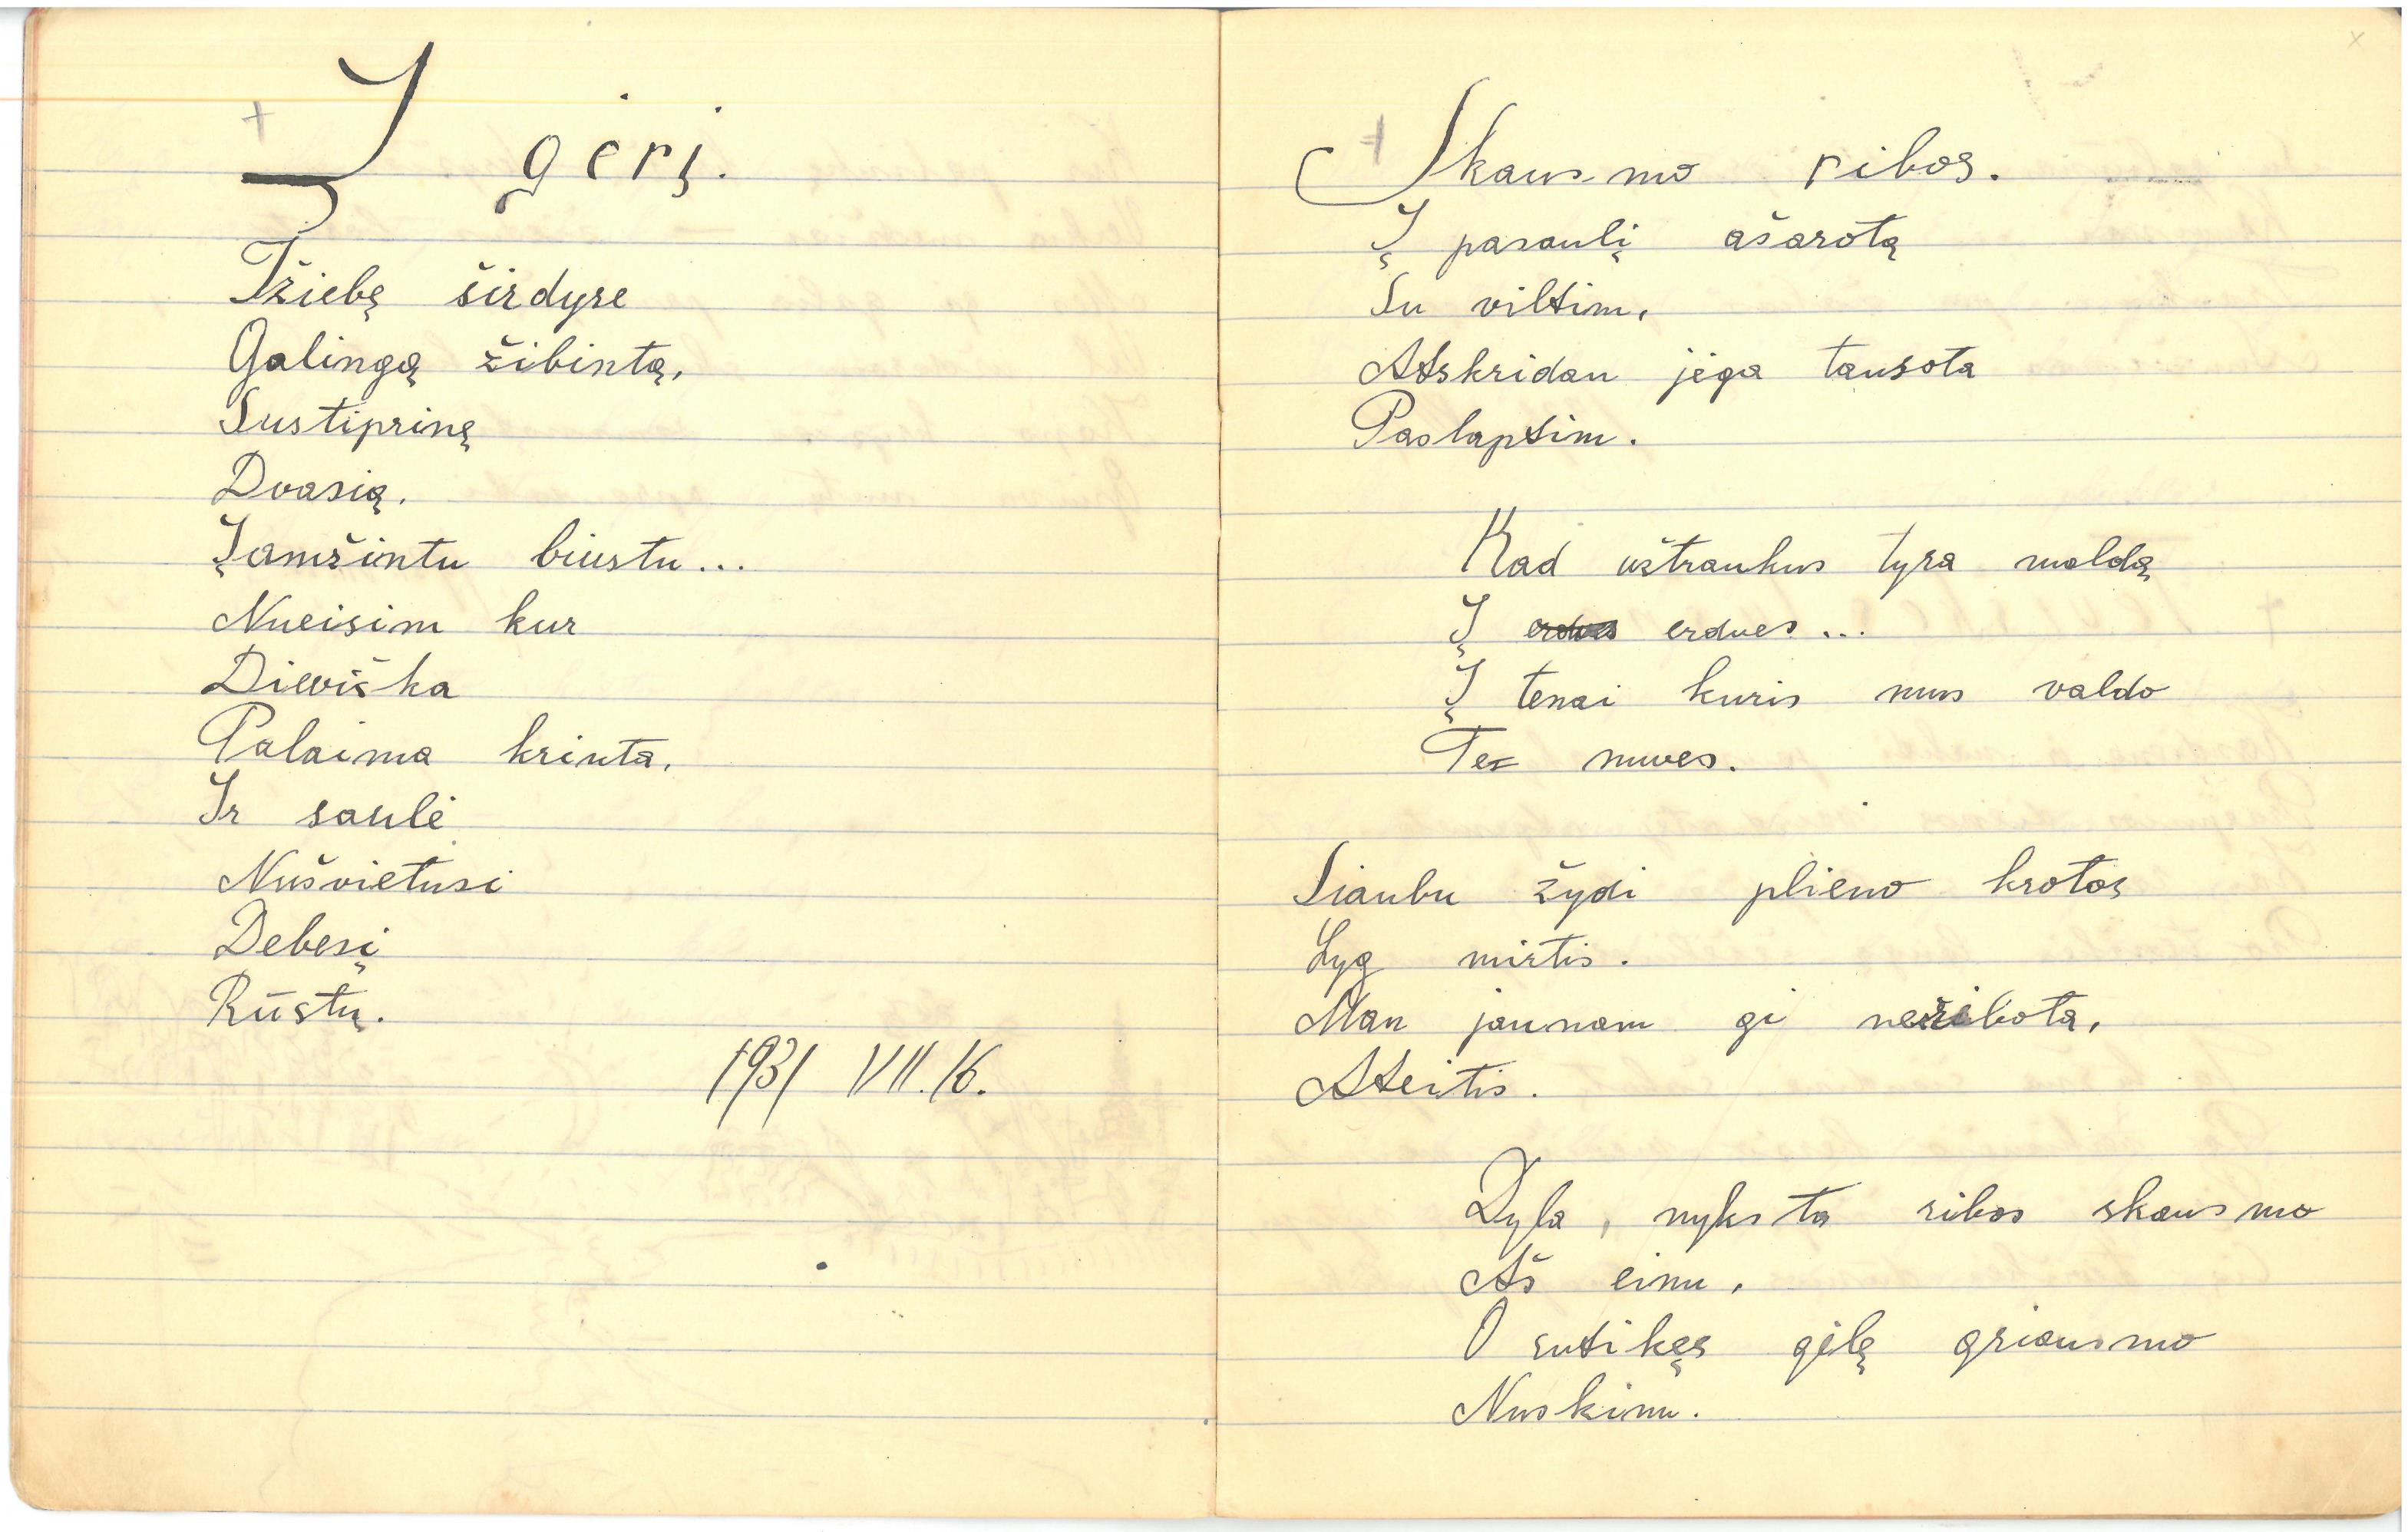 Į gėrį.
Įžiebę širdyse
Galingą žibintą,
Sustiprinę
Dvasią,
Įamžintu biustu...
Nueisim kur
Dieviška
Palaima krinta,
Ir saulė
Nušvietusi
Debesį
Rūstų.
1931 VII.16.
Skausmo ribos.
Į pasaulį ašarotą
Su viltim,
Atskridau jėga tausota
Paslaptim.
Kad užtraukus tyra maldą
Į erdves...
Į tenai kuris mus valdo
Te nuves.
Siaubu žydi plieno krotos
Lyg mirtis.
Man jaunam gi neribota,
Ateitis.
Dyla, nyksta ribos skausmo
Aš einu,
O sutikęs gėlę griausmo
Nuskinu.